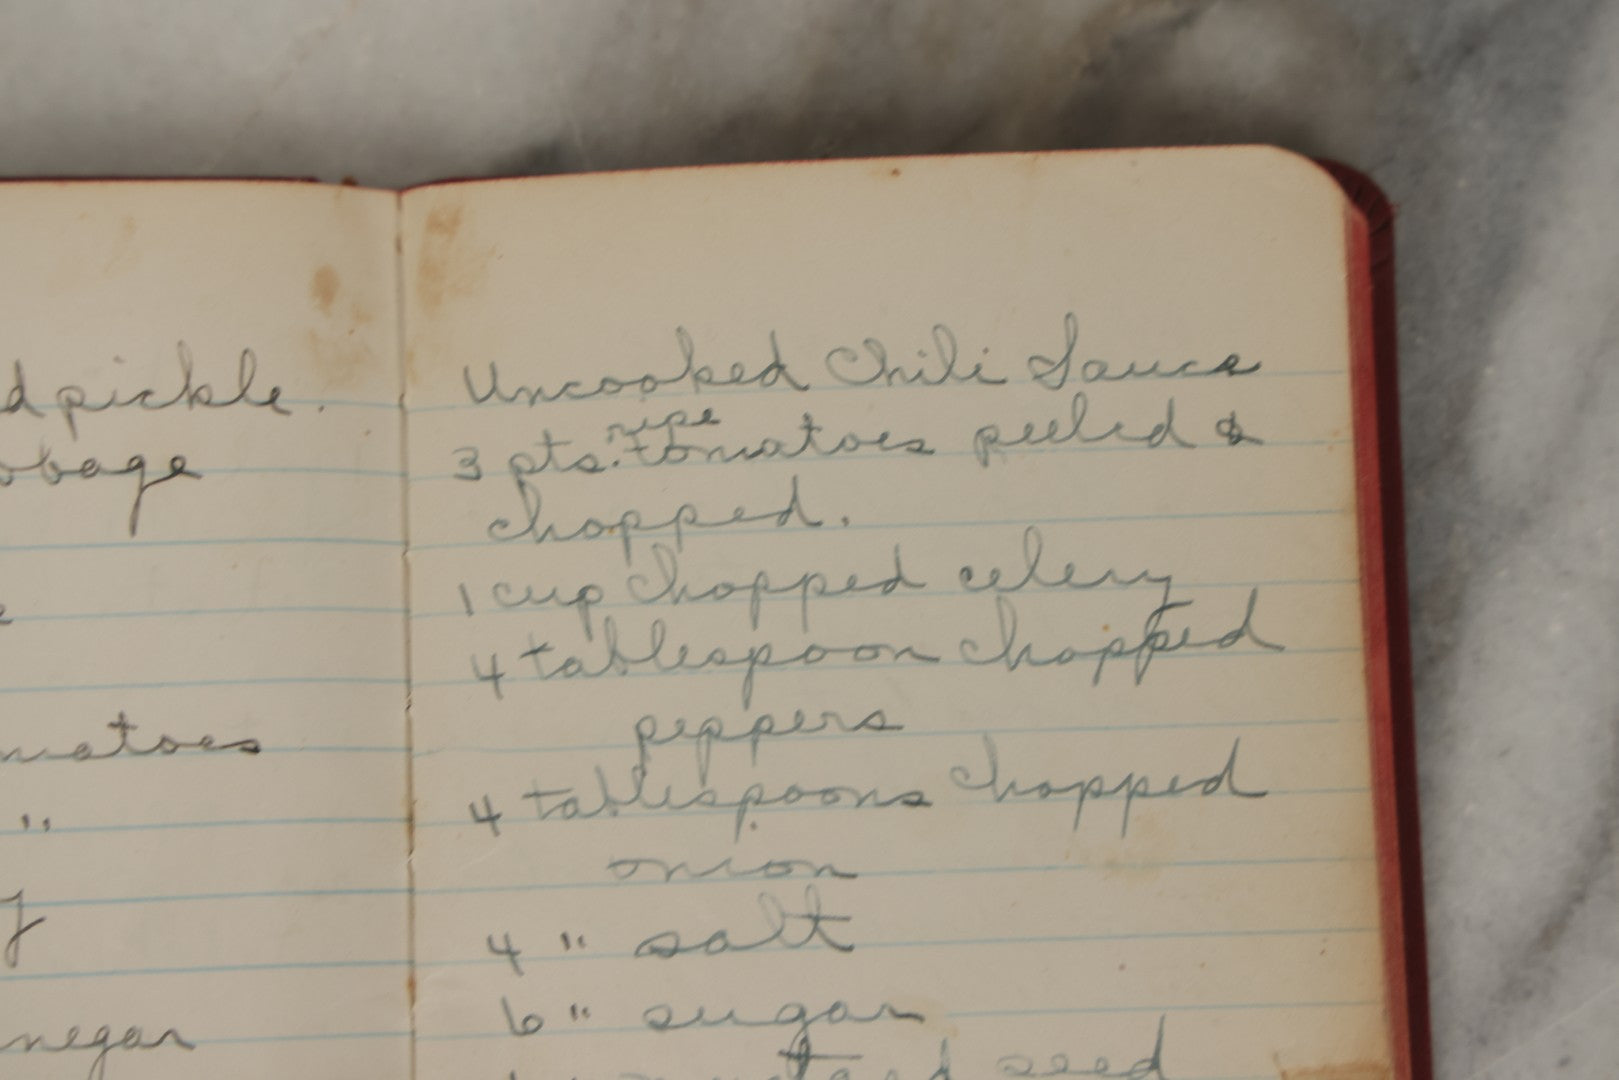 d pickle.
bbage
matoes
"
y
negar
Uncooked Chili Sauce
ripe
3 pts. tomatoes peeled &
chopped.
1 cup chopped celery
4 tablespoon chopped
peppers
4 tablespoons chopped
onion
4 " salt
6 " sugar
mustard seed